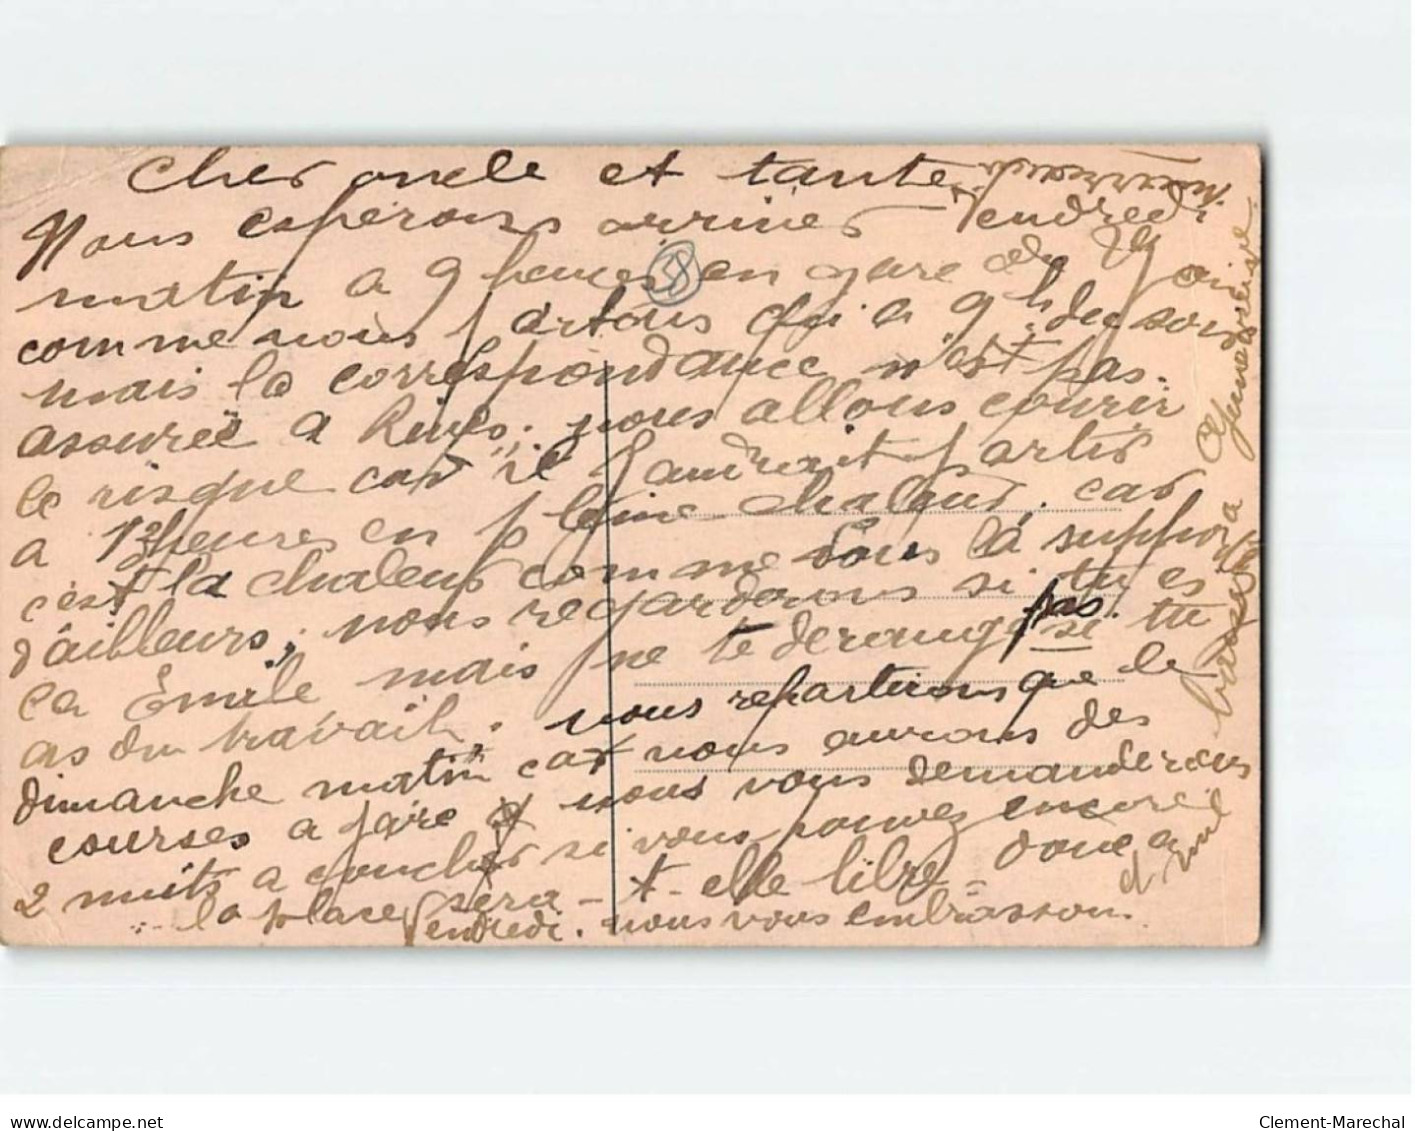 Cher oncle et tante
Nous espérons arriver Vendredi
matin a 9 heures en gare de
comme nous partons d'ici a 9 h. du soir
mais la correspondance n'est pas
assurée a Rives. nous allons courir
le risque car il faudrait partir
a 12 heures en pleine chaleur, car
c'est la chaleur comme vous la
d'ailleurs, nous regarderons si tu es
la Emile mais ne te derange pas si tu
as du travail. nous repartirons que le
dimanche matin car nous aurons des
courses a faire et nous vous demanderons
2 nuits a coucher si vous pouvez encore
la place sera-t-elle libre. donc a
Vendredi. nous vous embrassons
58
Clement-Marechal
www.delcampe.net